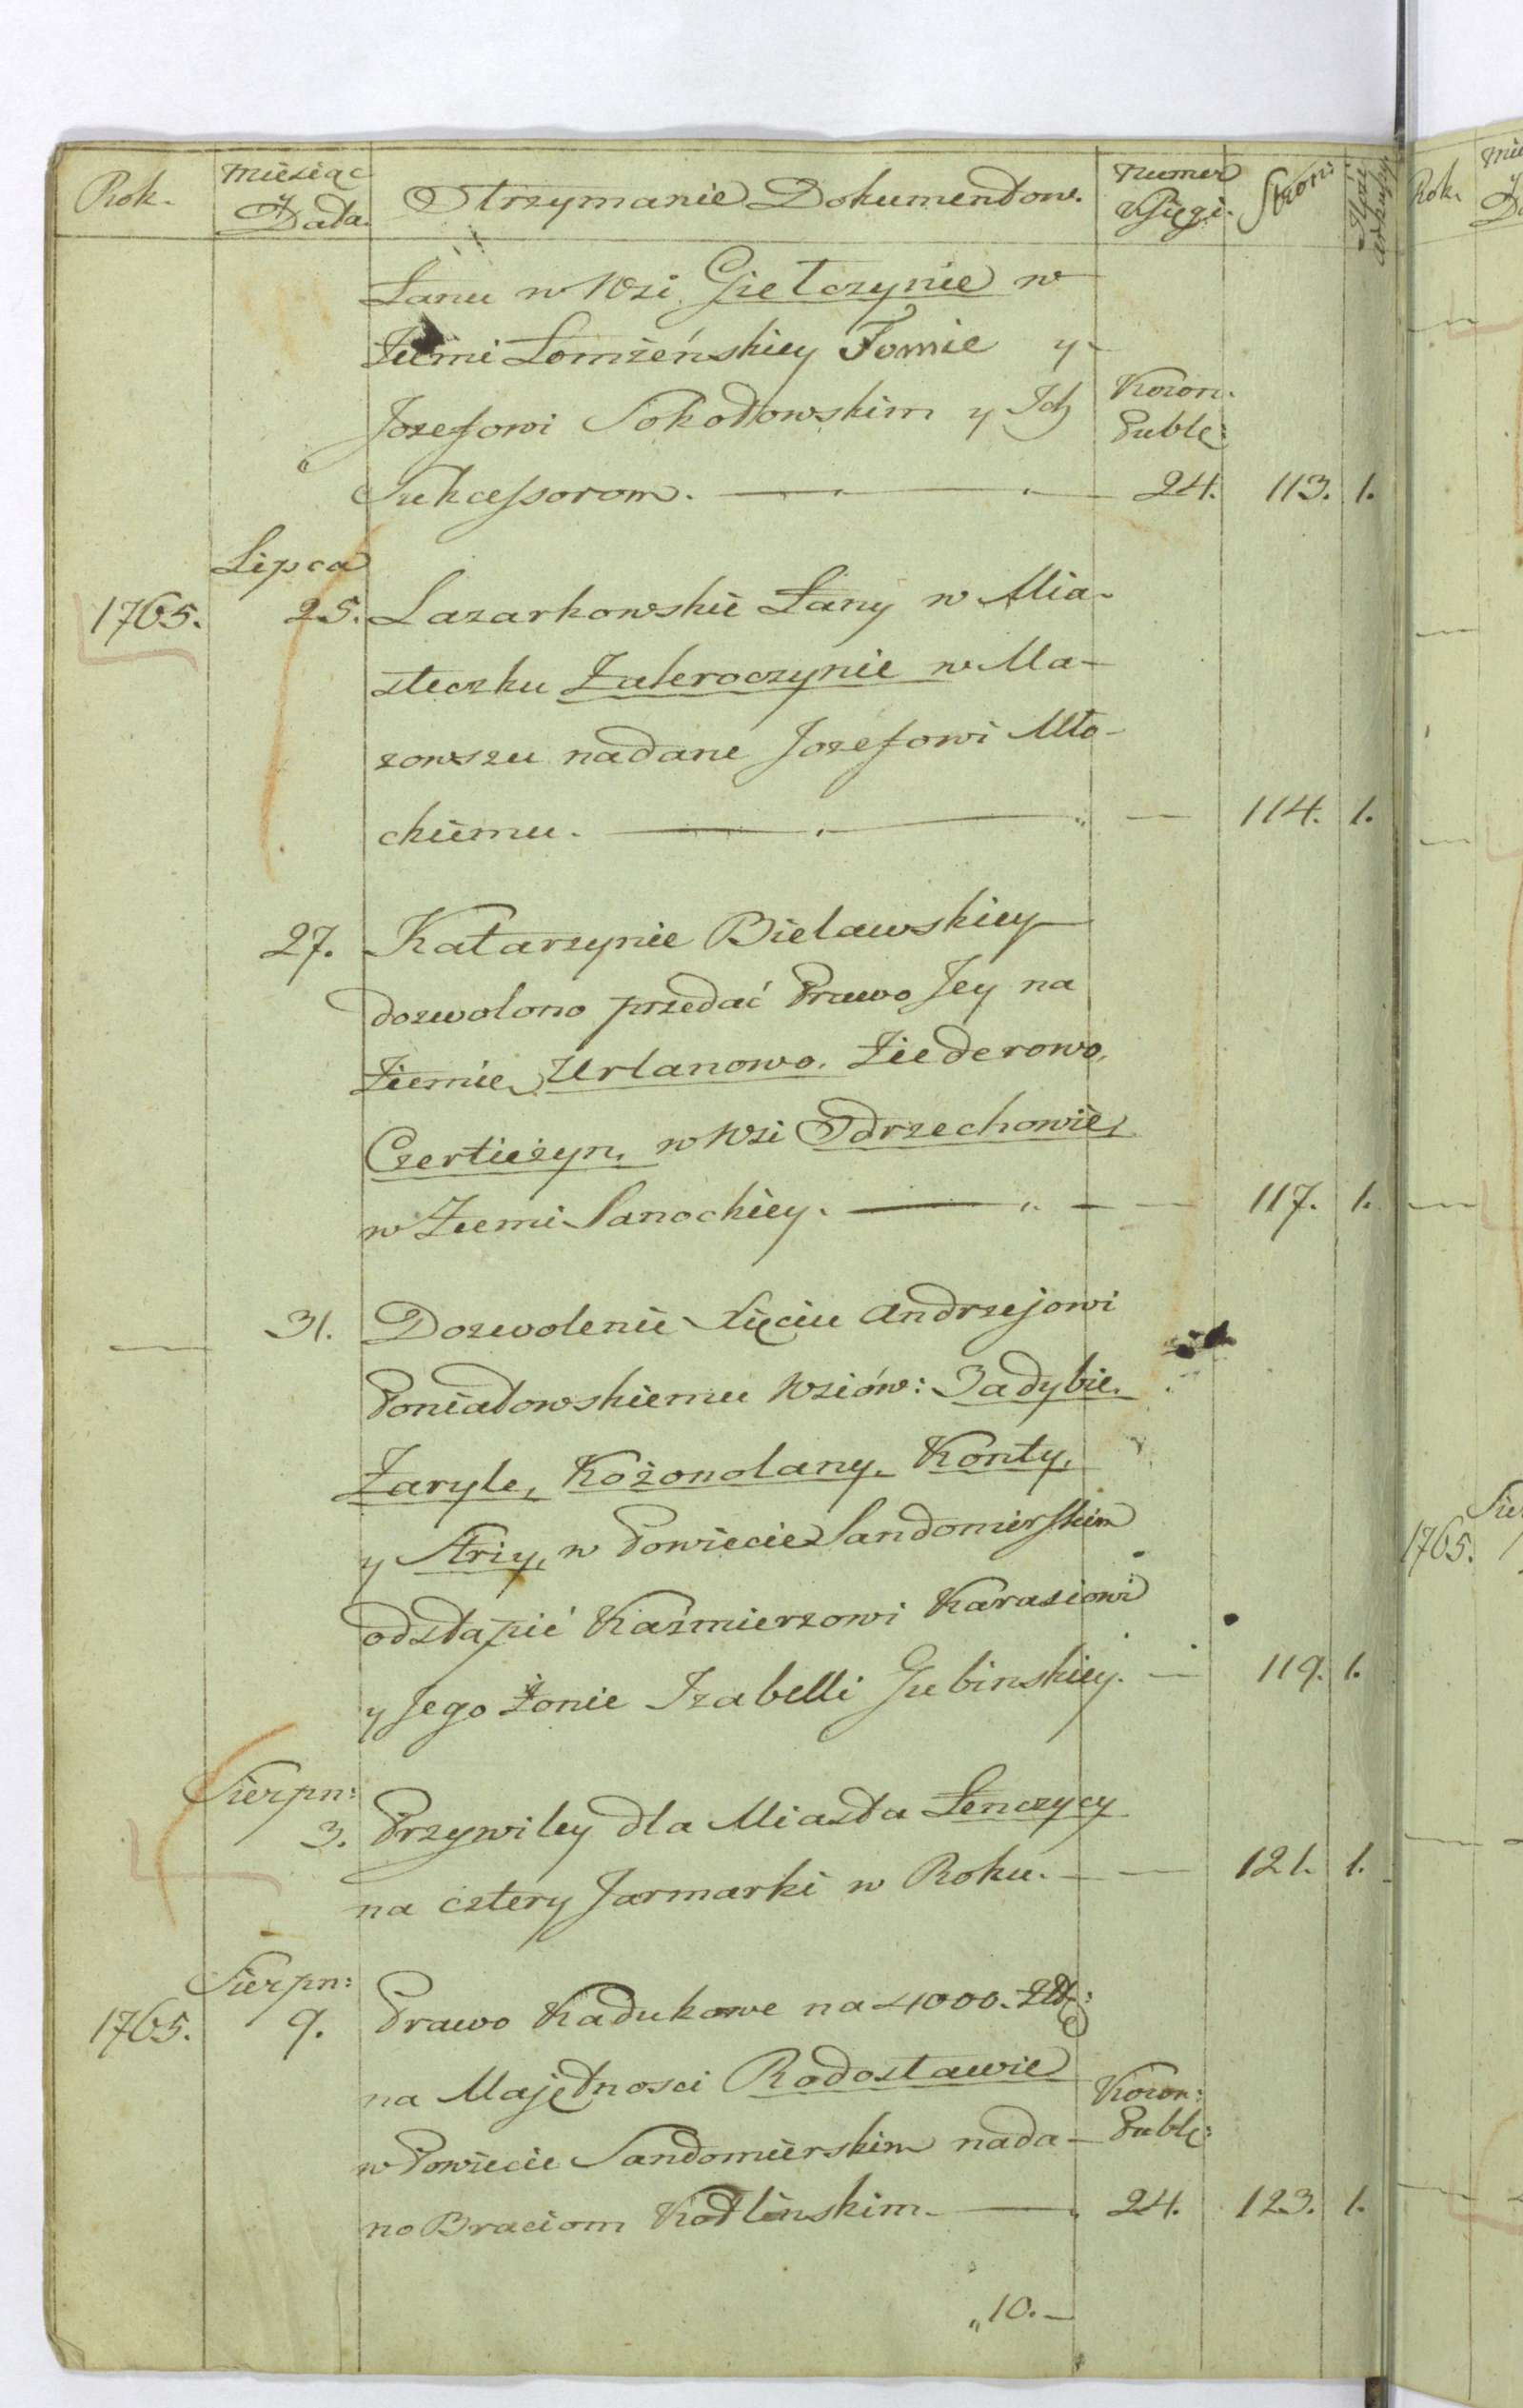 Rok. Miesiąc Data. Otrzymanie Dokumentow. Numer Xsięgi. Stron:
Łanu w Wsi Giełczynie w
Ziemi Łomżeńskiey Tomie y
Jozefowi Sokołowskim y Ich Koron:
Publ:
Sukcessorom. 24. 113. 1.
Lipca
1765. 25. Lazarkowskie Łany w Mia-
steczku Zakroczynie w Ma-
zowszu nadane Jozefowi Mło-
ckiemu. — 114. 1.
27. Katarzynie Bielawskiey
dozwolono przedać Prawo Jey na
Ziemie Urlanowo. Ziederowo,
Czertieżyn, w Wsi Odrzechowie,
w Ziemi Sanockiey. — 117. 1.
— 31. Dozwolenie Xięciu Andrzejowi
Poniatowskiemu Wsiów: Zadybie.
Zaryte, Kożonolany, Konty,
y Stziy, w Powiecie Sandomierskim
odstąpić Kaźmierzowi Karasiowi
y Jego Żonie Izabelli Gubinskiey. — 119. 1.
Sierpn:
3. Przywiley dla Miasta Łenczycy
na cztery Jarmarki w Roku. — 121. 1.
Sierpn:
1765. 9. Prawo Kadukowe na 4000. Złł:
na Majętnosci Radosławie Koron:
w Powiecie Sandomierskim nada- Publ:
no Braciom Kotlinskim. 24. 123. 1.
„10.—